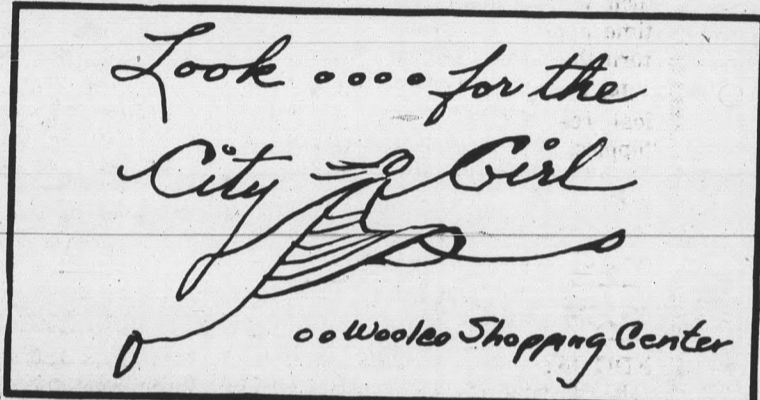 Look .... for the
City Girl
oo Woolco Shopping Center